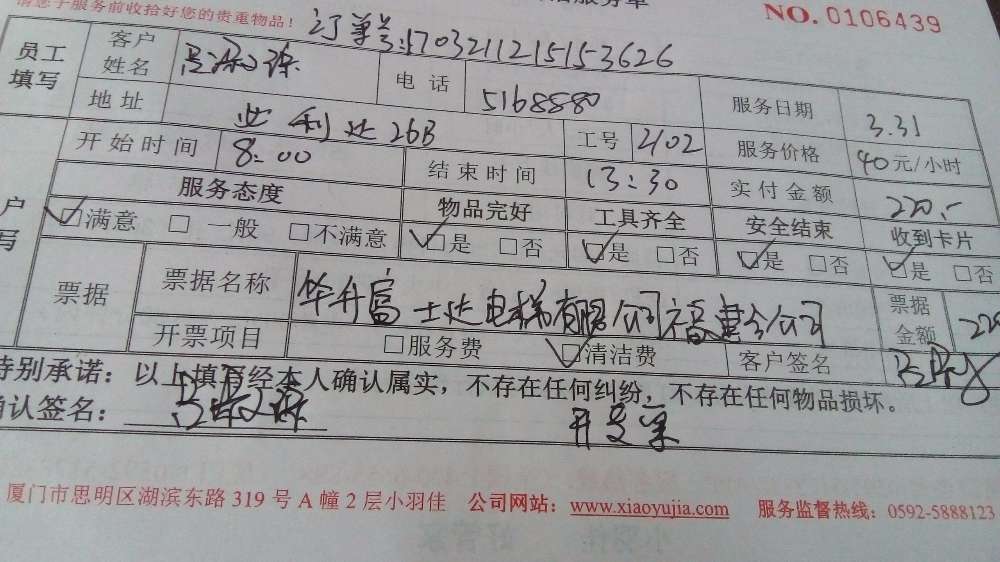 请您于服务前收拾好您的贵重物品! 订单号:1703211215153626 NO. 0106439
员工填写 客户姓名 电话 5168880 服务日期 3.31
地址 26B 工号 2102 服务价格 40元/小时
开始时间 8:00 结束时间 13:30 实付金额 220.-
服务态度 物品完好 工具齐全 安全结束 收到卡片
☑满意 □一般 □不满意 ☑是 □否 ☑是 □否 ☑是 □否 ☑是 □否
票据 票据名称 华升富士达电梯有限公司福建分公司 票据金额 220
开票项目 □服务费 ☑清洁费 客户签名
特别承诺:以上填写经本人确认属实,不存在任何纠纷,不存在任何物品损坏。
确认签名: 开发票
厦门市思明区湖滨东路 319 号 A 幢 2 层小羽佳 公司网站:www.xiaoyujia.com 服务监督热线:0592-5888123